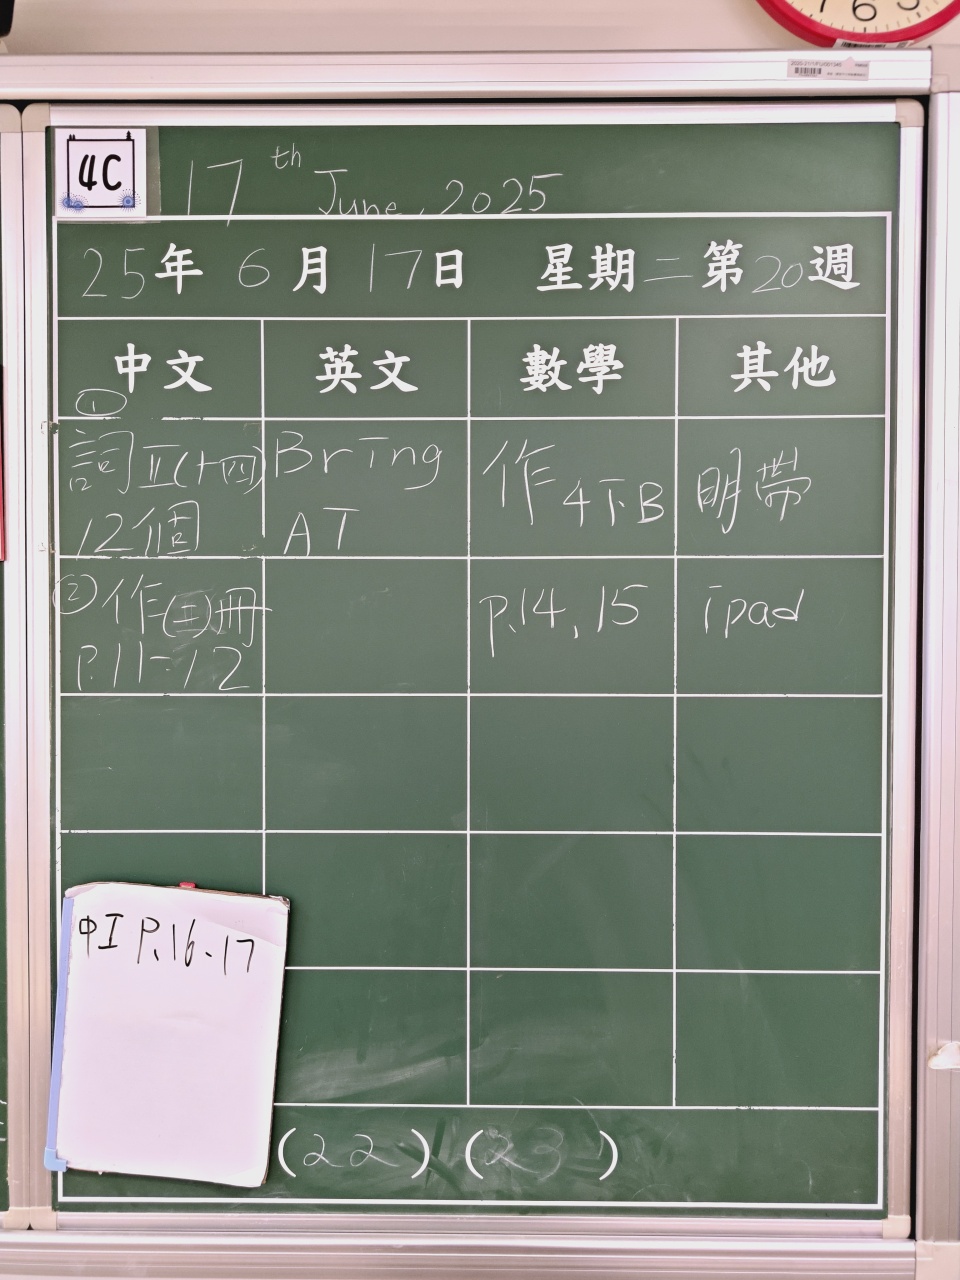 4C
17th June, 2025
25年 6月 17日 星期二 第20週
中文 英文 數學 其他
①
詞Ⅱ(十四)
12個
Bring
AT
作4下B
明帶
②作(三)冊
p.11-12
p.14, 15
ipad
中工 P.16-17
(22) (23)